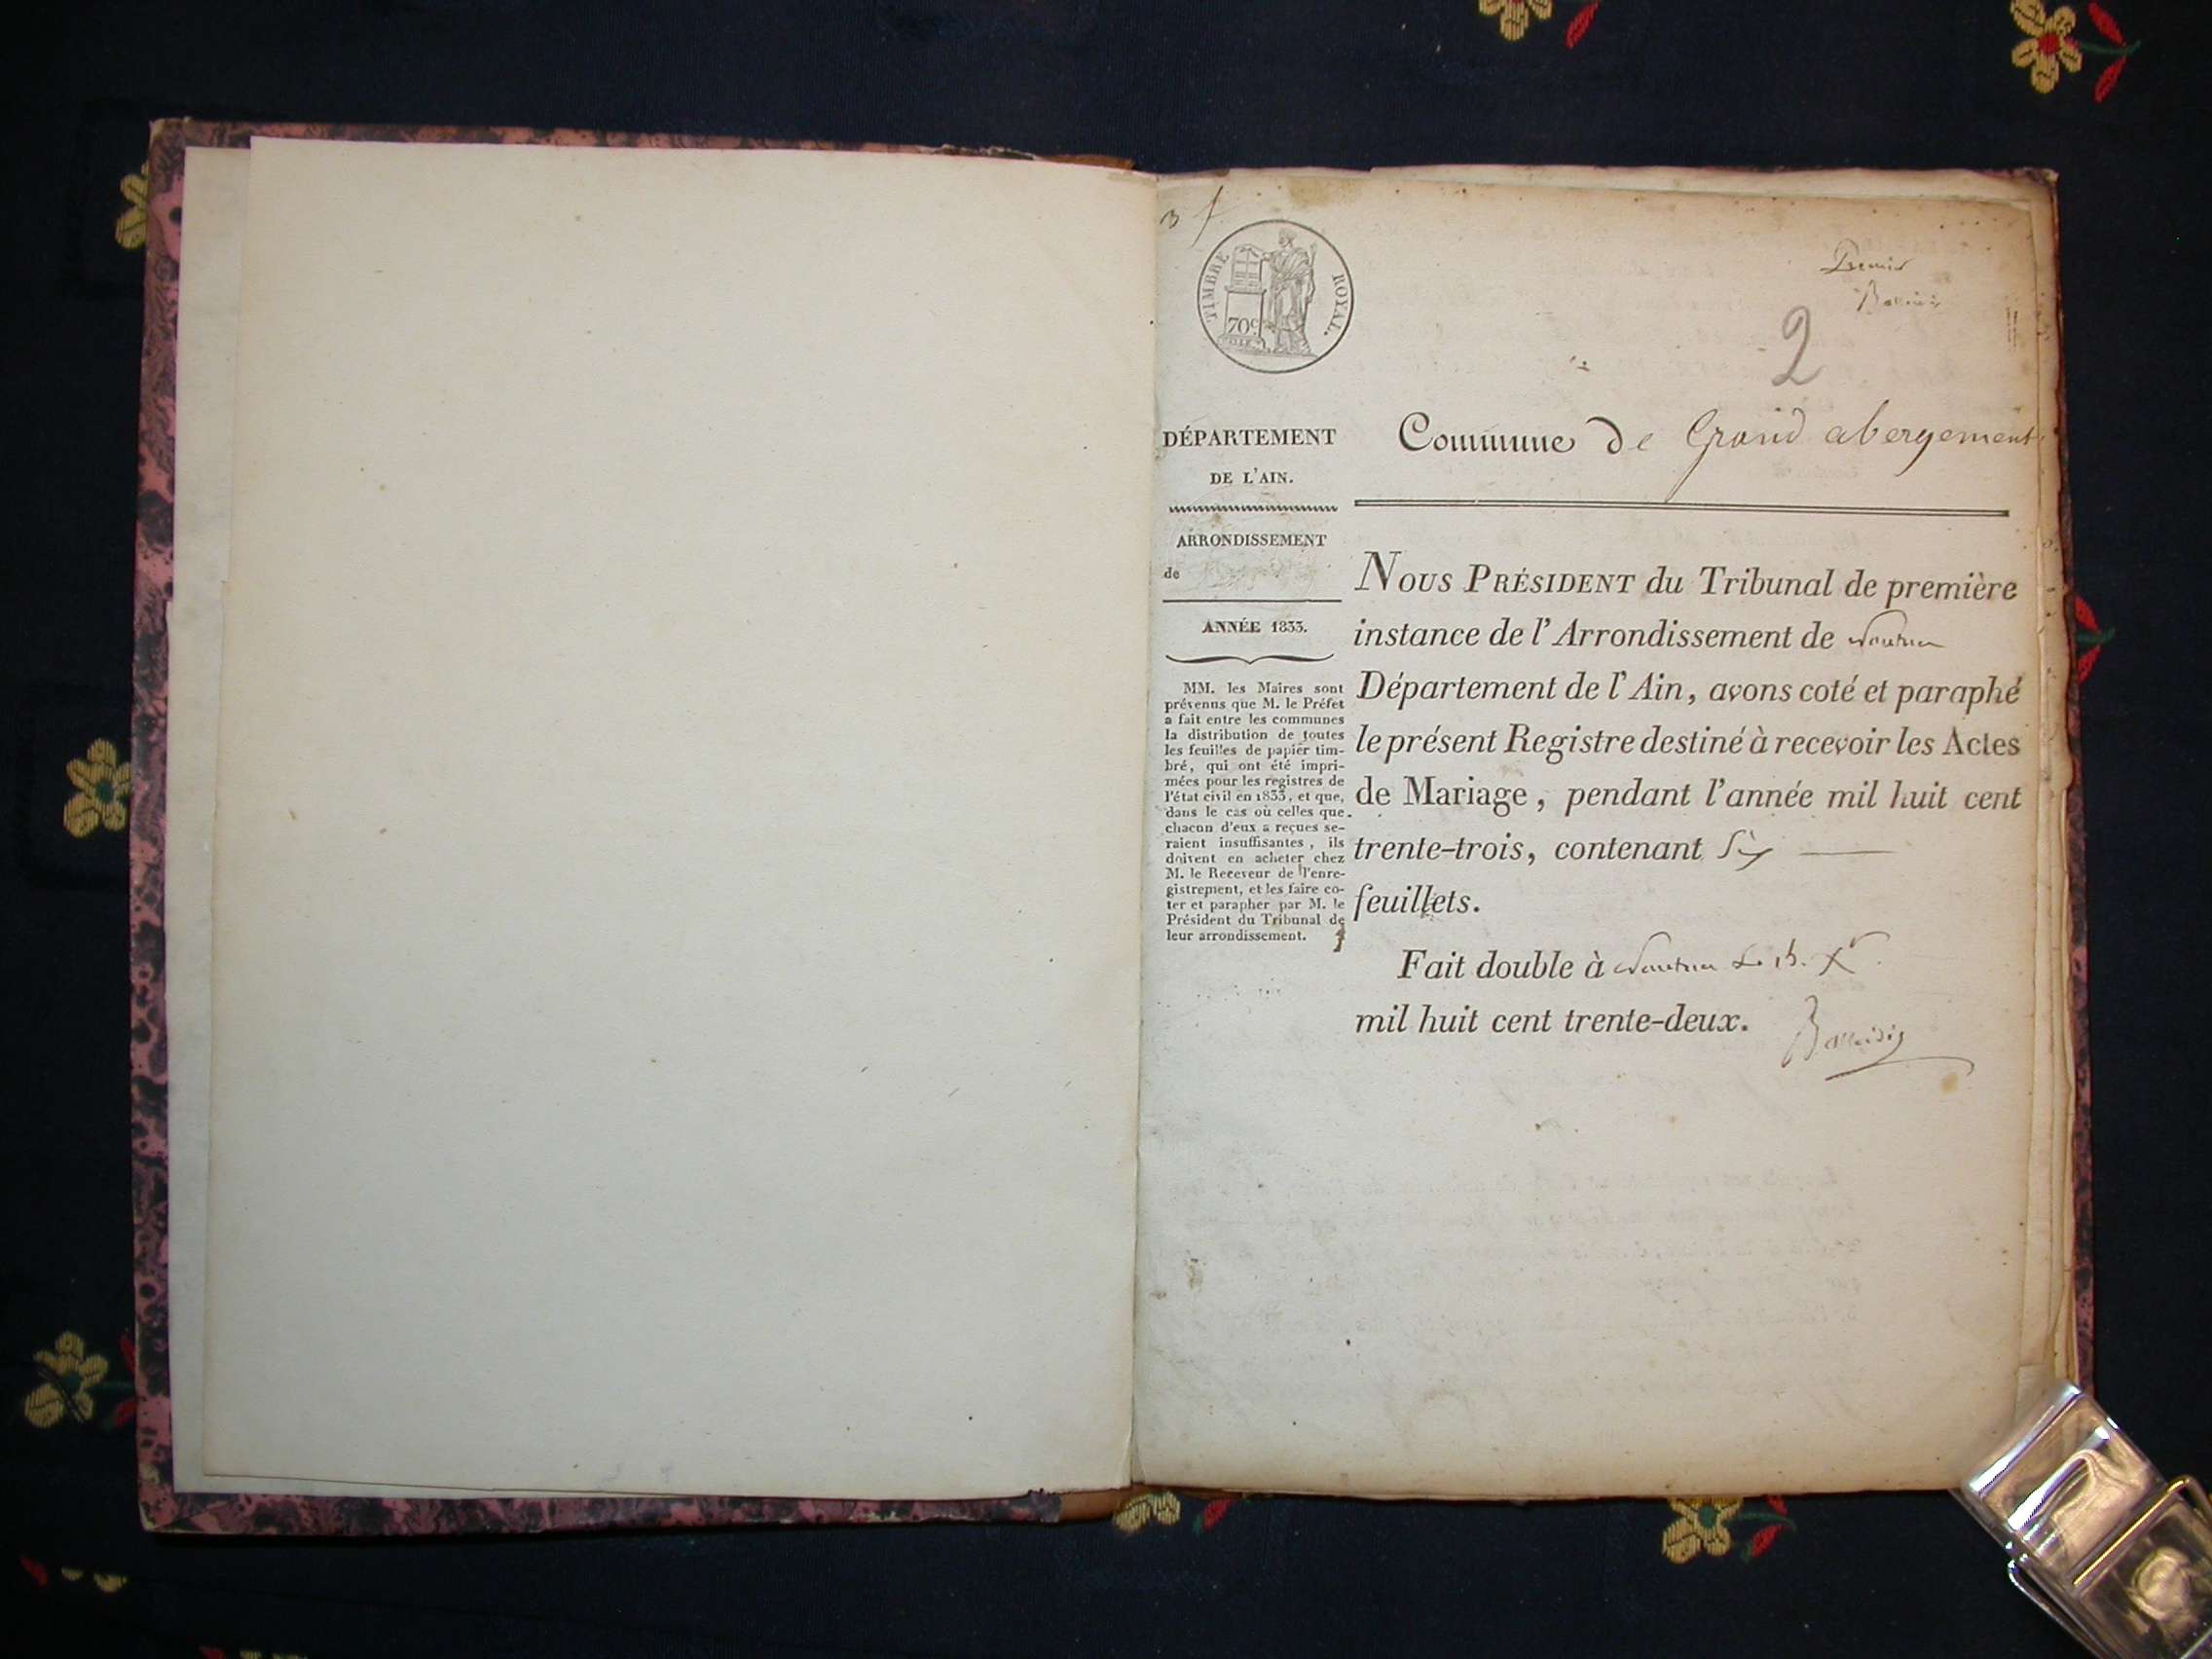 TIMBRE ROYAL.
70c
Premier
2
DÉPARTEMENT
DE L'AIN.
ARRONDISSEMENT
de
ANNÉE 1833.
MM. les Maires sont
prévenus que M. le Préfet
a fait entre les communes
la distribution de toutes
les feuilles de papier tim-
bré, qui ont été impri-
mées pour les registres de
l'état civil en 1833, et que,
dans le cas où celles que
chacun d'eux a reçues se-
raient insuffisantes, ils
doivent en acheter chez
M. le Receveur de l'enre-
gistrement, et les faire co-
ter et parapher par M. le
Président du Tribunal de
leur arrondissement.
Commune de Grand abergement
NOUS PRÉSIDENT du Tribunal de première
instance de l'Arrondissement de Nantua
Département de l'Ain, avons coté et paraphé
le présent Registre destiné à recevoir les Actes
de Mariage, pendant l'année mil huit cent
trente-trois, contenant Six
feuillets.
Fait double à Nantua Le 15. Xr.
mil huit cent trente-deux.